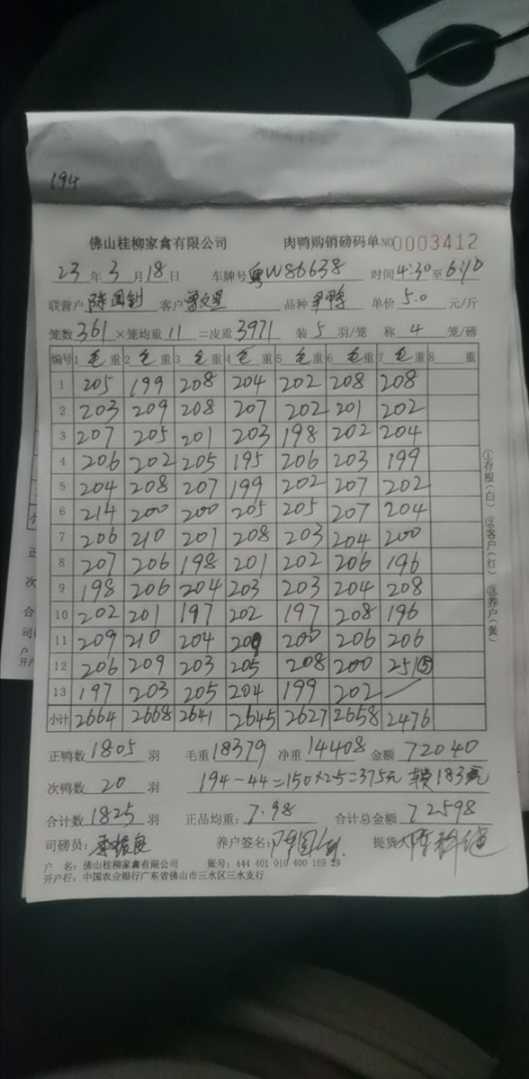 194
佛山桂柳家禽有限公司 肉鸭购销磅码单 NO 0003412
23年3月18日 车牌号 粤W86638 时间 4:30至6:10
联营户 陈国钊 客户 品种 单价 5.0 元/斤
笼数 361 ×笼均重 11 =皮重 3971 装 5 羽/笼 称 4 笼/磅
编号 1 毛重 2 毛重 3 毛重 4 毛重 5 毛重 6 毛重 7 毛重 8 重
1 205 199 208 204 202 208 208
2 203 209 208 207 202 201 202
3 207 205 201 203 198 202 204
4 206 202 205 195 206 203 199
5 204 208 207 199 202 207 202
6 214 200 200 205 205 207 204
7 206 210 201 208 203 204 200
8 207 206 198 201 202 206 196
9 198 206 204 203 203 204 208
10 202 201 197 202 197 208 196
11 209 210 204 209 200 206 206
12 206 209 203 205 208 200 251⑤
13 197 203 205 204 199 202
小计 2664 2668 2641 2645 2627 2658 2476
①存根(白) ②客户(红) ③养户(黄)
正鸭数 1805 羽 毛重 18379 净重 14408 金额 72040
次鸭数 20 羽 194-44=150×2.5=375元 183元
合计数 1825 羽 正品均重: 7.98 合计总金额 72598
司磅员: 养户签名: 提货人
户 名: 佛山桂柳家禽有限公司 账号: 444 401 010 400 169 29
开户行: 中国农业银行广东省佛山市三水区三水支行